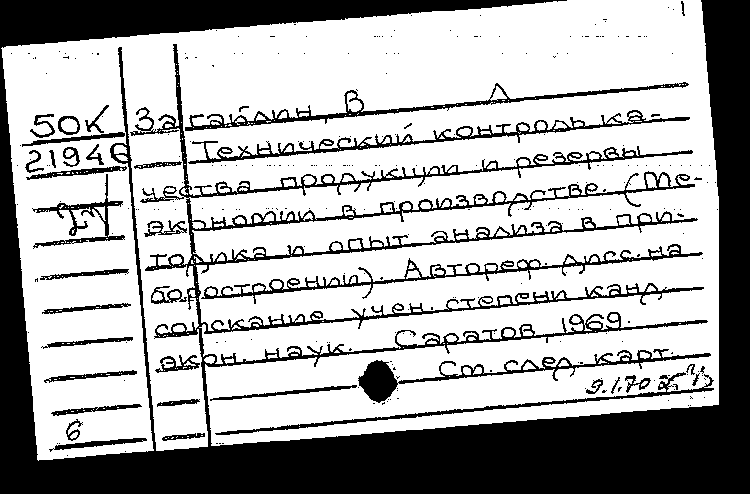 50К Загаблин, В Л
21946 Технический контроль ка-
чества продукции и резервы
экономии в производстве. (Ме-
тодика и опыт анализа в при-
боростроении). Автореф. дисс. на
соискание учен. степени канд.
экон. наук. Саратов, 1969.
См. след. карт.
9.1.70
6